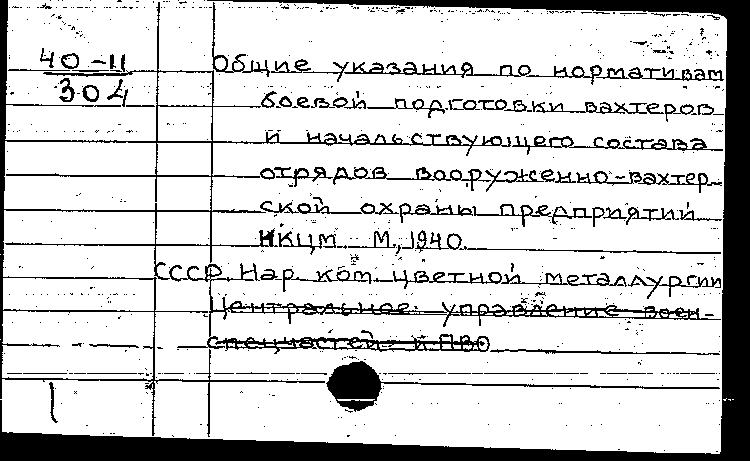 40-11
304
Общие указания по нормативам
боевой подготовки вахтеров
и начальствующего состава
отрядов вооруженно-вахтер-
ской охраны предприятий
НКЦМ М., 1940.
СССР. Нар. ком. цветной металлургии
Центральное управление воен-
спецчастей и ПВО
1